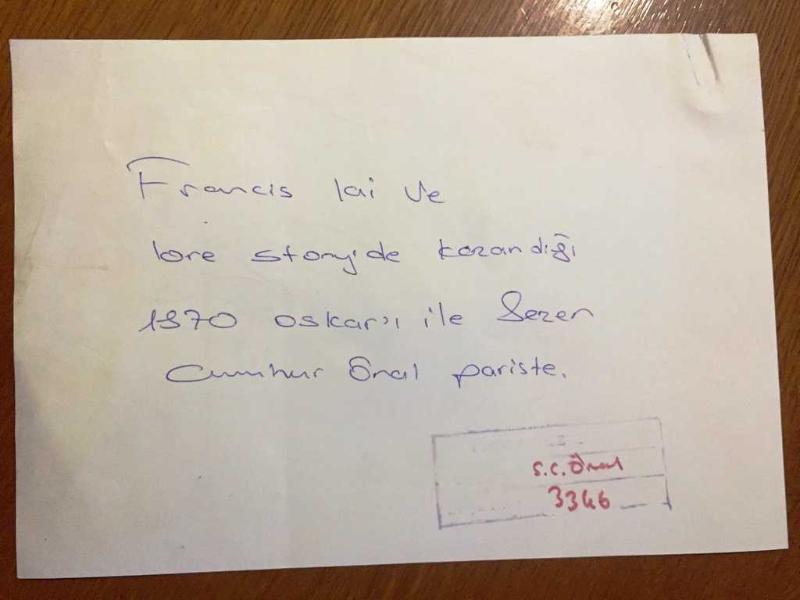 Francis lai ve
love story'de kazandığı
1970 oskar'ı ile Sezen
Cumhur Önal pariste.
S.C. Önal
3346